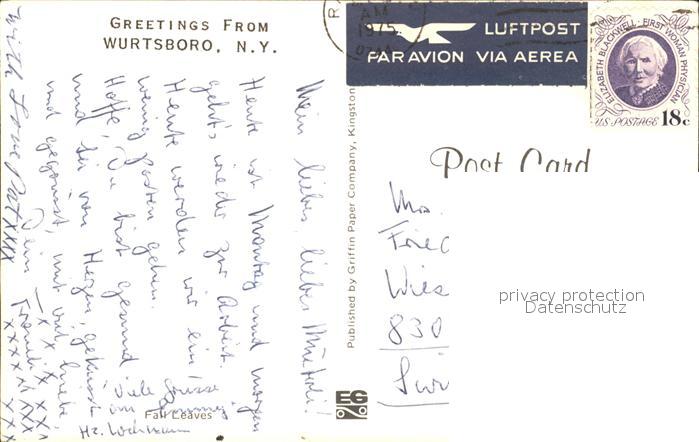 GREETINGS FROM
WURTSBORO, N.Y.
AM
1975
LUFTPOST
PAR AVION VIA AEREA
ELIZABETH BLACKWELL · FIRST WOMAN PHYSICIAN
U.S. POSTAGE 18c
Post Card
Published by Griffin Paper Company, Kingston
Mein lieber, lieber
Heute ist Montag und morgen
geht's wieder zur Arbeit.
Heute werden wir ein
wenig posten gehen.
Hoffe, Du bist gesund
und sei von Herzen geküsst
und gegrüsst, mit viel Liebe,
Dein
With Love Pat xxxx
Viele Grüsse
von
Hz.
Fall Leaves
EG
Mrs.
Frie
Wies
830
privacy protection
Datenschutz